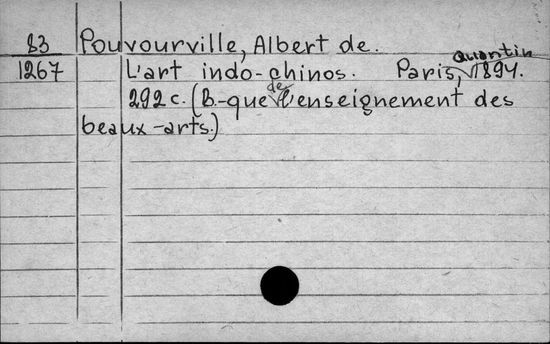 83 Pouvourville, Albert de.
1267 L'art indo-chinos. Paris, Quantin 1894.
292 c. (B.-que de l'enseignement des
beaux-arts.)